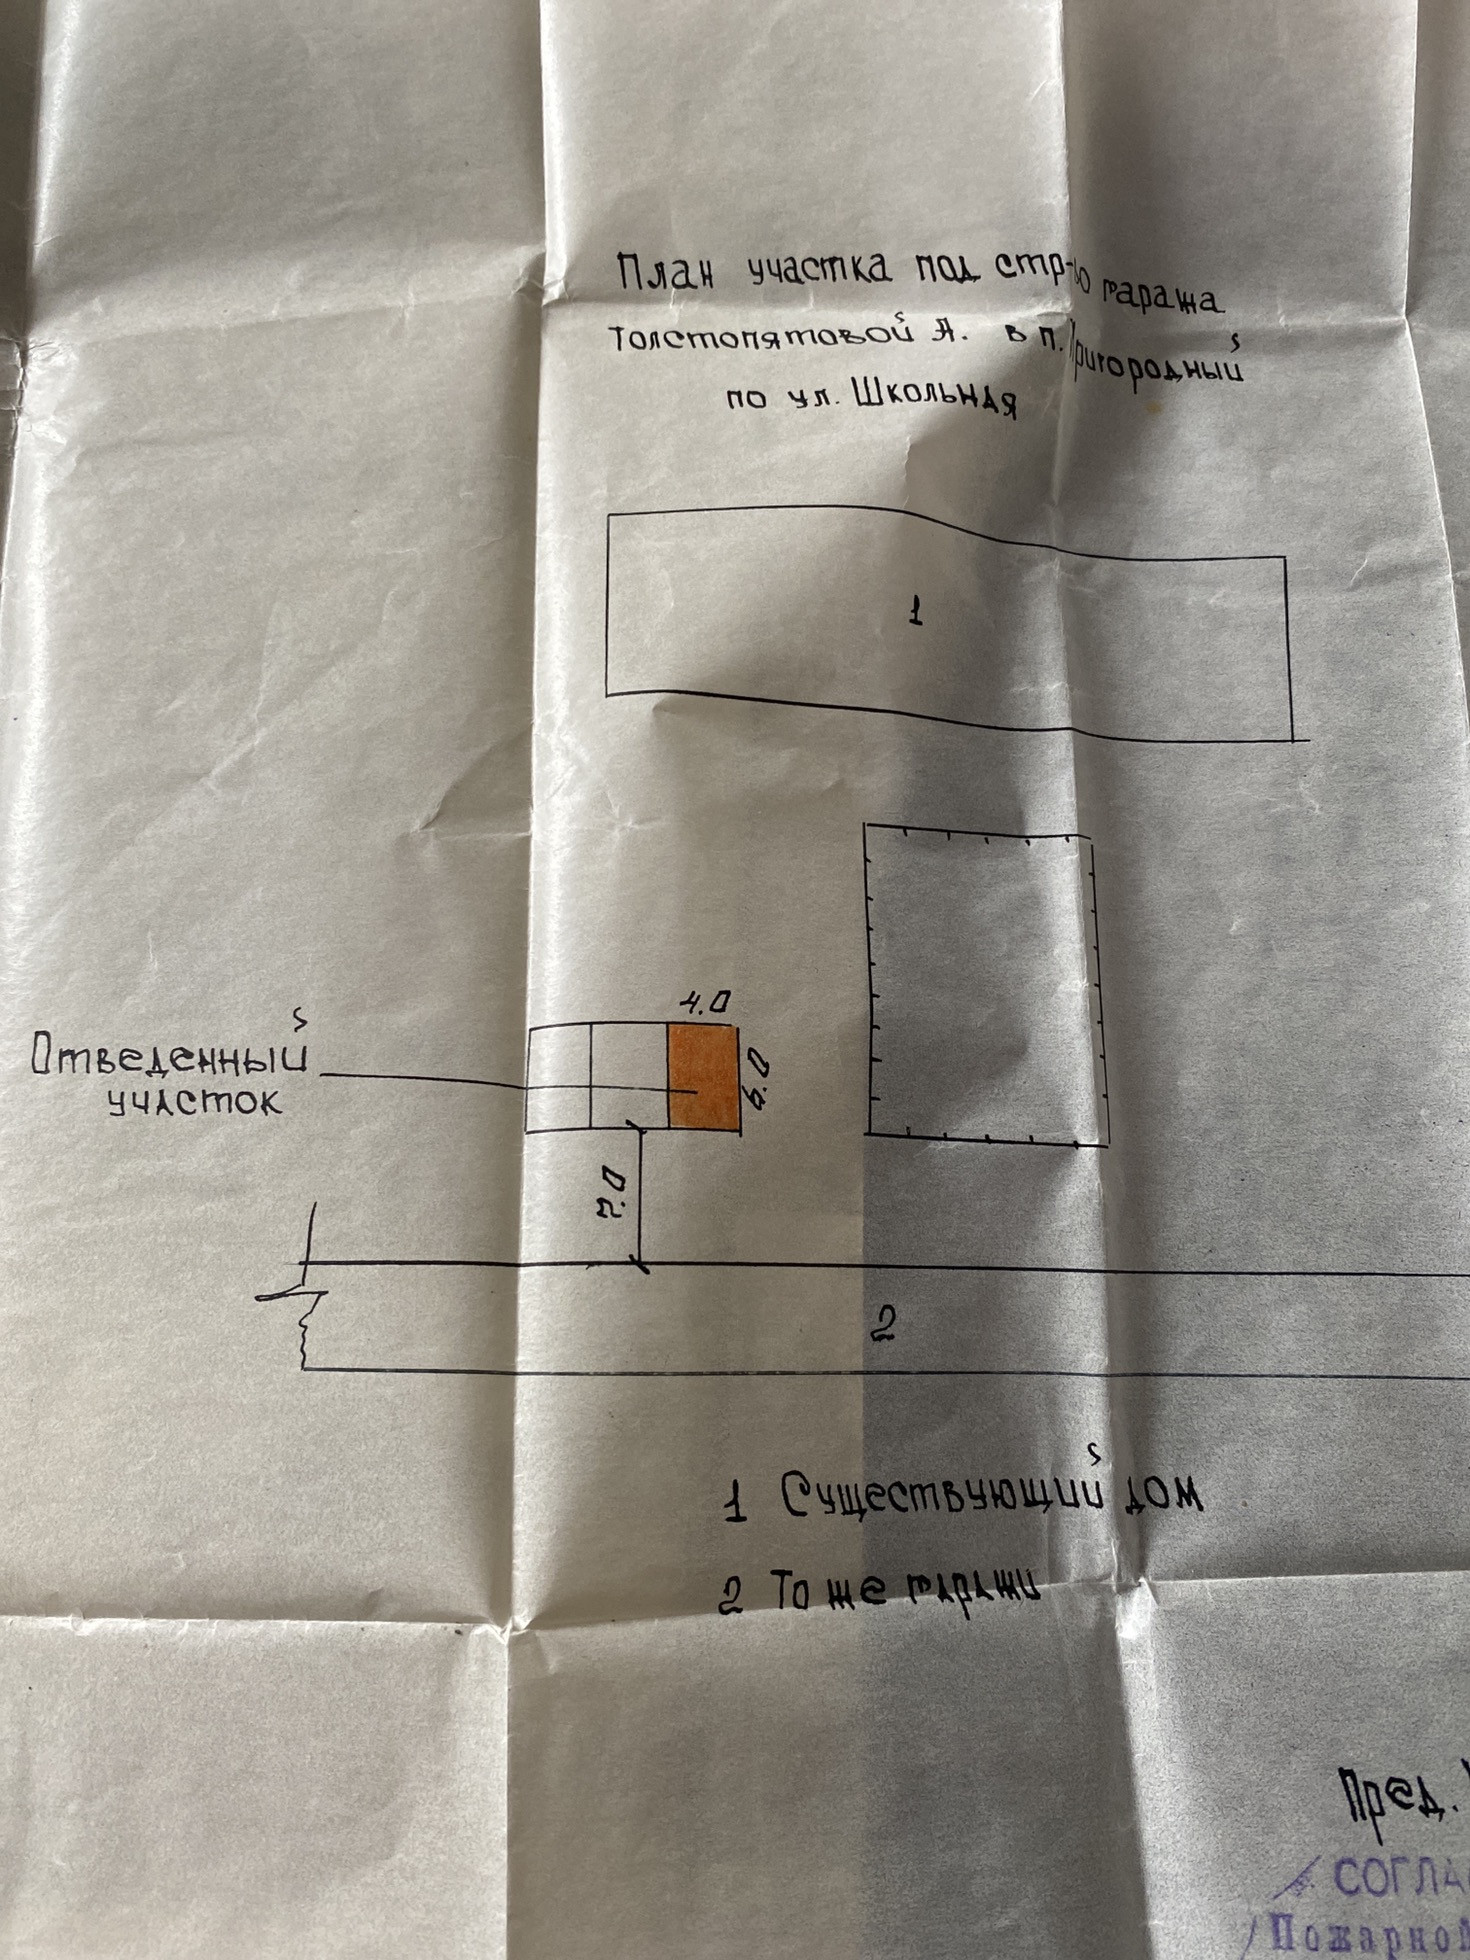 План участка под стр-во гаража
Толстопятовой А. в п. Пригородный
по ул. Школьная
1
4.0
Отведенный
участок
6.0
7.0
2
1 Существующий дом
2 То же гаражи
Пред.
СОГЛА
Пожарной